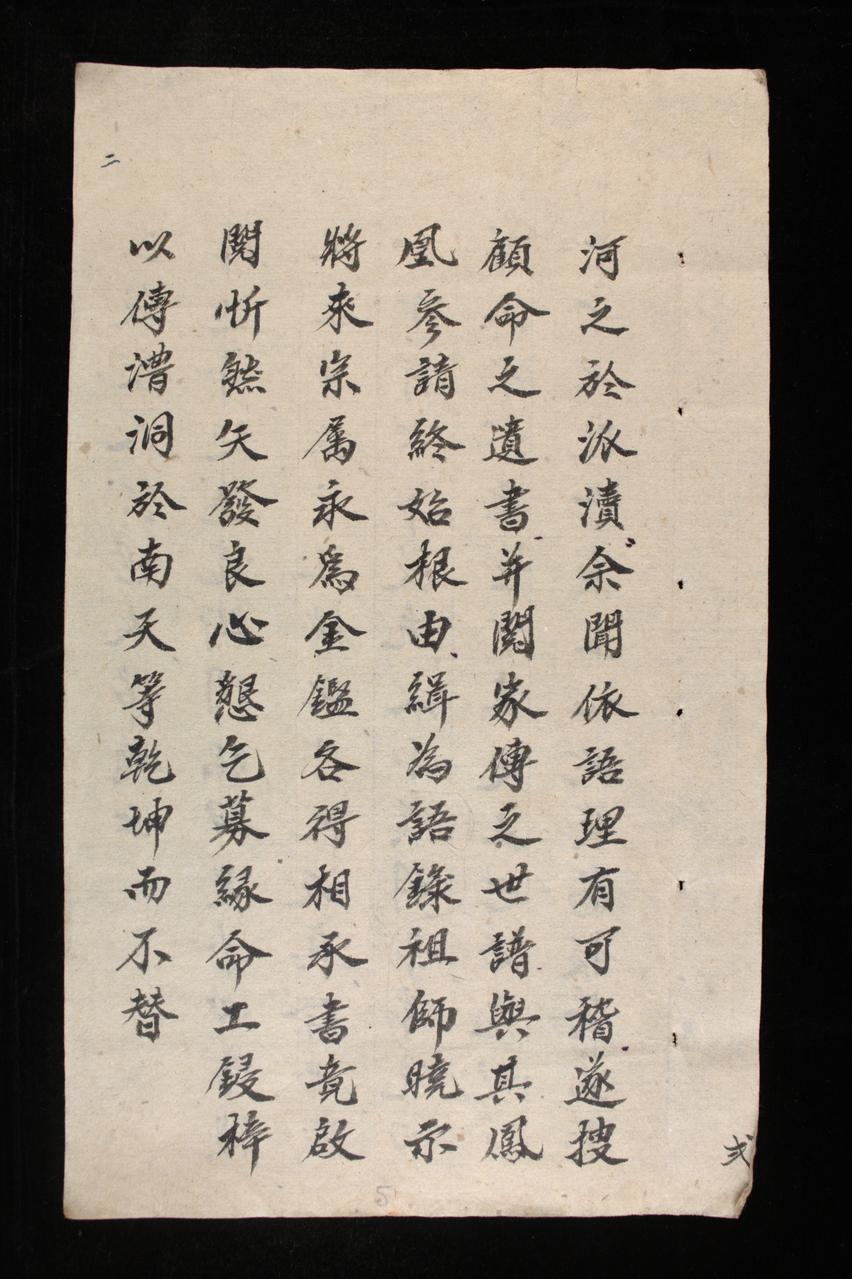 河之於派瀆余聞依語理有可稽遂搜
顧命之遺書并閱家傳之世譜與其鳳
凰參請終始根由緝為語錄祖師曉示
將來宗属永爲金鑑各得相承書竟啟
閱忻然矢發良心懇乞募緣命工鋟梓
以傳漕洞於南天等乾坤而不替
二
弍
5